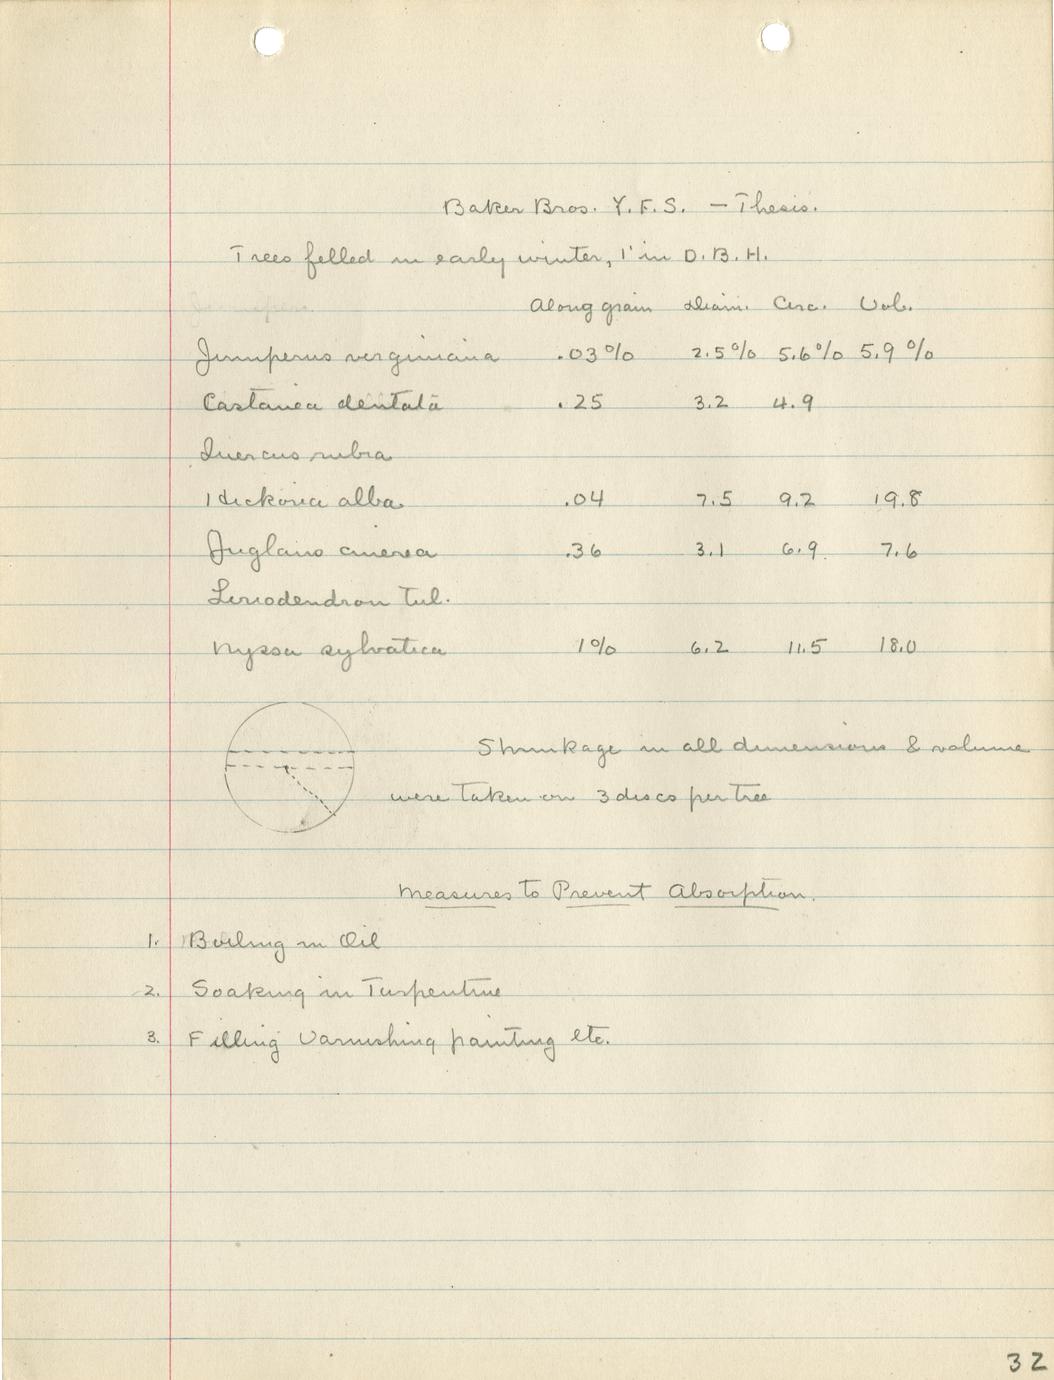 Baker Bros. Y.F.S. — Thesis.
Trees felled in early winter, 1' in D.B.H.
Along grain Diam. Circ. Vol.
Juniperus virginiana .03% 2.5% 5.6% 5.9%
Castanea dentata .25 3.2 4.9
Quercus rubra
Hickoria alba .04 7.5 9.2 19.8
Juglans cinerea .36 3.1 6.9 7.6
Liriodendron tul.
Nyssa sylvatica 1% 6.2 11.5 18.0
Shrinkage in all dimensions & volume
were taken on 3 discs per tree
Measures to Prevent Absorption.
1. Boiling in Oil
2. Soaking in Turpentine
3. Filling Varnishing painting etc.
32